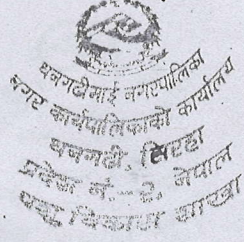 धनगढीमाई नगरपालिका
नगर कार्यपालिकाको कार्यालय
धनगढी, सिरहा
प्रदेश नं. २, नेपाल
पशु विकास शाखा